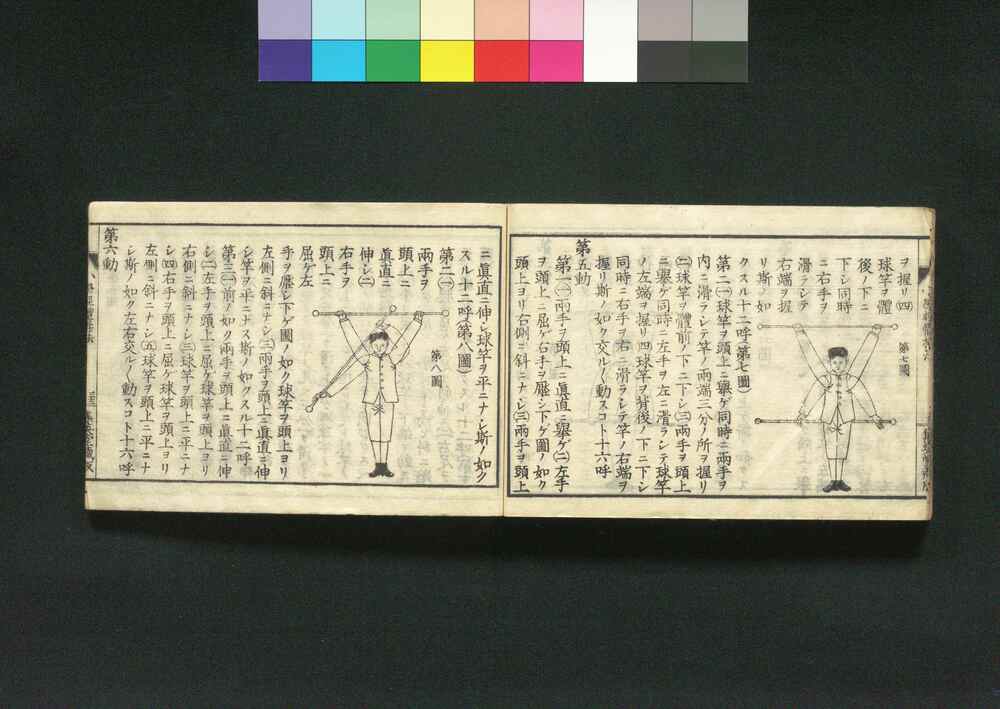 ヲ握リ(四)
球竿ヲ體
後ノ下ニ
下シ同時
ニ右手ヲ
滑ラシテ
右端ヲ握
リ斯ノ如
クスル十二呼(第七圖)
第七圖
第二(一)球竿ヲ頭上ニ擧ゲ同時ニ兩手ヲ
內ニ滑ラシテ竿ノ兩端三分ノ所ヲ握リ
(二)球竿ヲ體前ノ下ニ下シ(三)兩手ヲ頭上
ニ擧ゲ同時ニ左手ヲ左ニ滑ラシテ球竿
ノ左端ヲ握リ(四)球竿ヲ背後ノ下ニ下シ
同時ニ右手ヲ右ニ滑ラシテ竿ノ右端ヲ
握リ斯ノ如ク交ル〱動スコト十六呼
第五動
第一(一)兩手ヲ頭上ニ眞直ニ擧ゲ(二)左手
ヲ頭上ニ屈ゲ右手ヲ壓シ下ゲ圖ノ如ク
頭上ヨリ右側ニ斜ニナシ(三)兩手ヲ頭上
ニ眞直ニ伸シ球竿ヲ平ニナシ斯ノ如ク
スル十二呼(第八圖)
第二(一)
兩手ヲ
頭上ニ
眞直ニ
伸シ(二)
右手ヲ
頭上ニ
屈ゲ左
第八圖
手ヲ壓シ下ゲ圖ノ如ク球竿ヲ頭上ヨリ
左側ニ斜ニナシ(三)兩手ヲ頭上ニ眞直ニ伸
シ竿ヲ平ニナス斯ノ如クスル十二呼
第三(一)前ノ如ク兩手ヲ頭上ニ眞直ニ伸
シ(二)左手ヲ頭上ニ屈ゲ球竿ヲ頭上ヨリ
右側ニ斜ニナシ(三)球竿ヲ頭上ニ平ニナ
シ(四)右手ヲ頭上ニ屈ゲ球竿ヲ頭上ヨリ
左側ニ斜ニナシ(五)球竿ヲ頭上ニ平ニナ
シ斯ノ如ク左右交ル〱動スコト十六呼
第六動